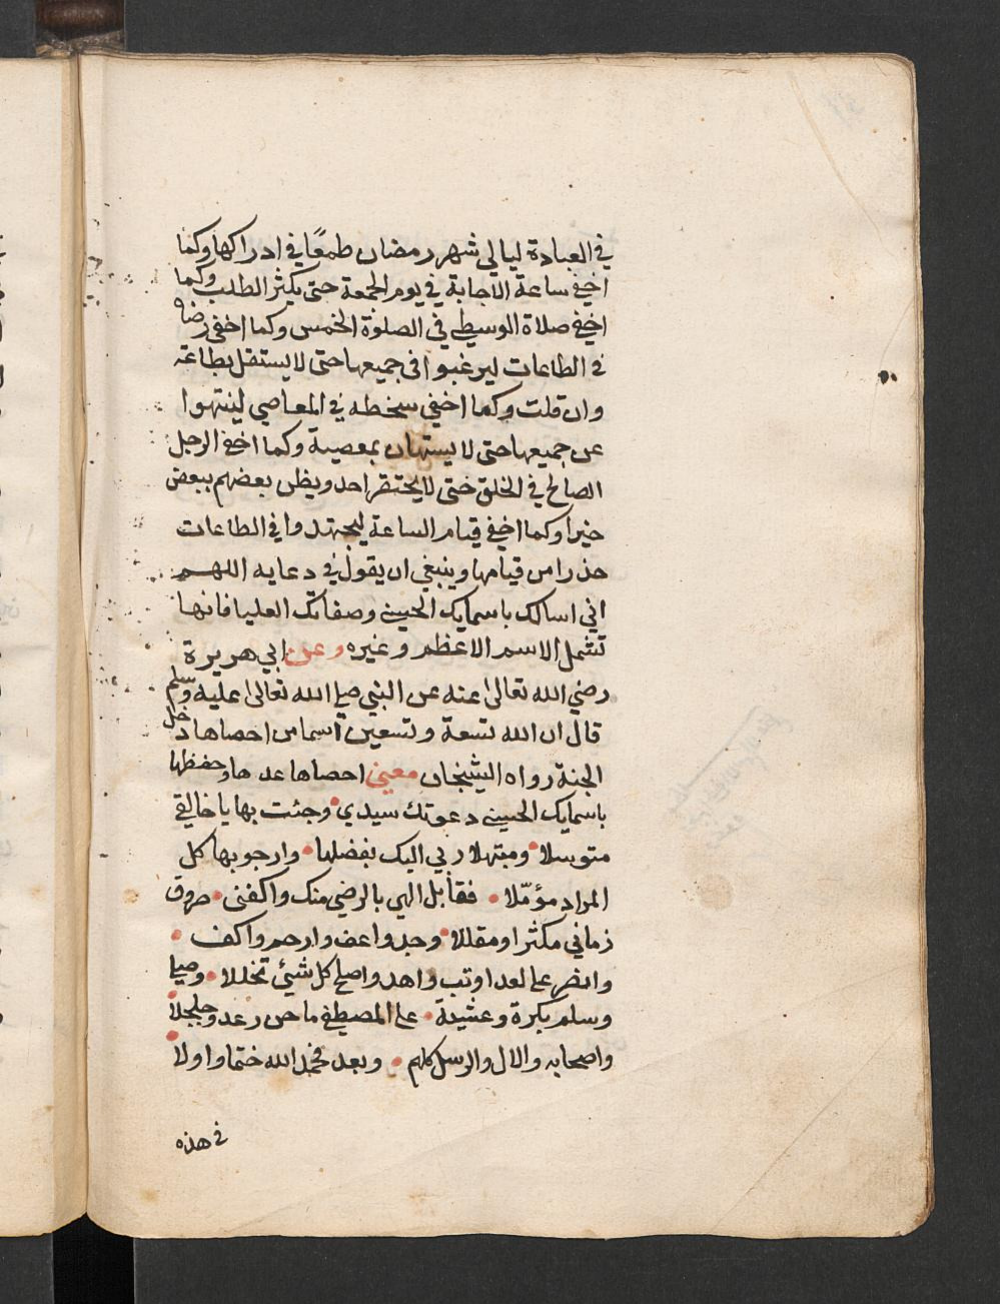 في العبادة ليالي شهر رمضان طمعًا في ادراكها وكما
اخفي ساعة الاجابة في يوم الجمعة حتى يكثر الطلب وكما
اخفي صلاة الوسطي في الصلوة الخمس وكما اخفى رضاه
في الطاعات ليرغبوا في جميعها حتى لا يستقل بطاعة
وان قلت وكما اخفي سخطه في المعاصي لينتهوا
عن جميعها حتى لا يستهان بمعصية وكما اخفى الرجل
الصالح في الخلق حتى لا يحتقر احد ويظن بعضهم ببعض
خيرا وكما اخفي قيام الساعة ليجتهدوا في الطاعات
حذرا من قيامها وينبغي ان يقول في دعايه اللهم
اني اسالك باسمايك الحسنى وصفاتك العليا فانها
تشمل الاسم الاعظم وغيره وعن ابي هريرة
رضي الله تعالى عنه عن النبي صلى الله تعالى عليه وسلم
قال ان الله تسعة وتسعين اسما من احصاها دخل
الجنة رواه الشيخان معنى احصاها عدها وحفظها
باسمايك الحسنى دعوتك سيدي • وجئت بها يا خالقي
متوسلا • ومبتهلا ربي اليك بفضلها • وارجو بها كل
المراد مؤمّلا • فقابل الهي بالرضي منك واكفنى • صروق
زماني مكثرا ومقللا • وجد واعف وارحم واكف •
وانصر على العدا وتب واهد واصلح كل شيئ تخللا • وصلى
وسلم بكرة وعشية • على المصطفى ما حن رعد وجلجلا •
واصحابه والال والرسل كلهم • وبعد فحمد الله ختما واولا
في هذه